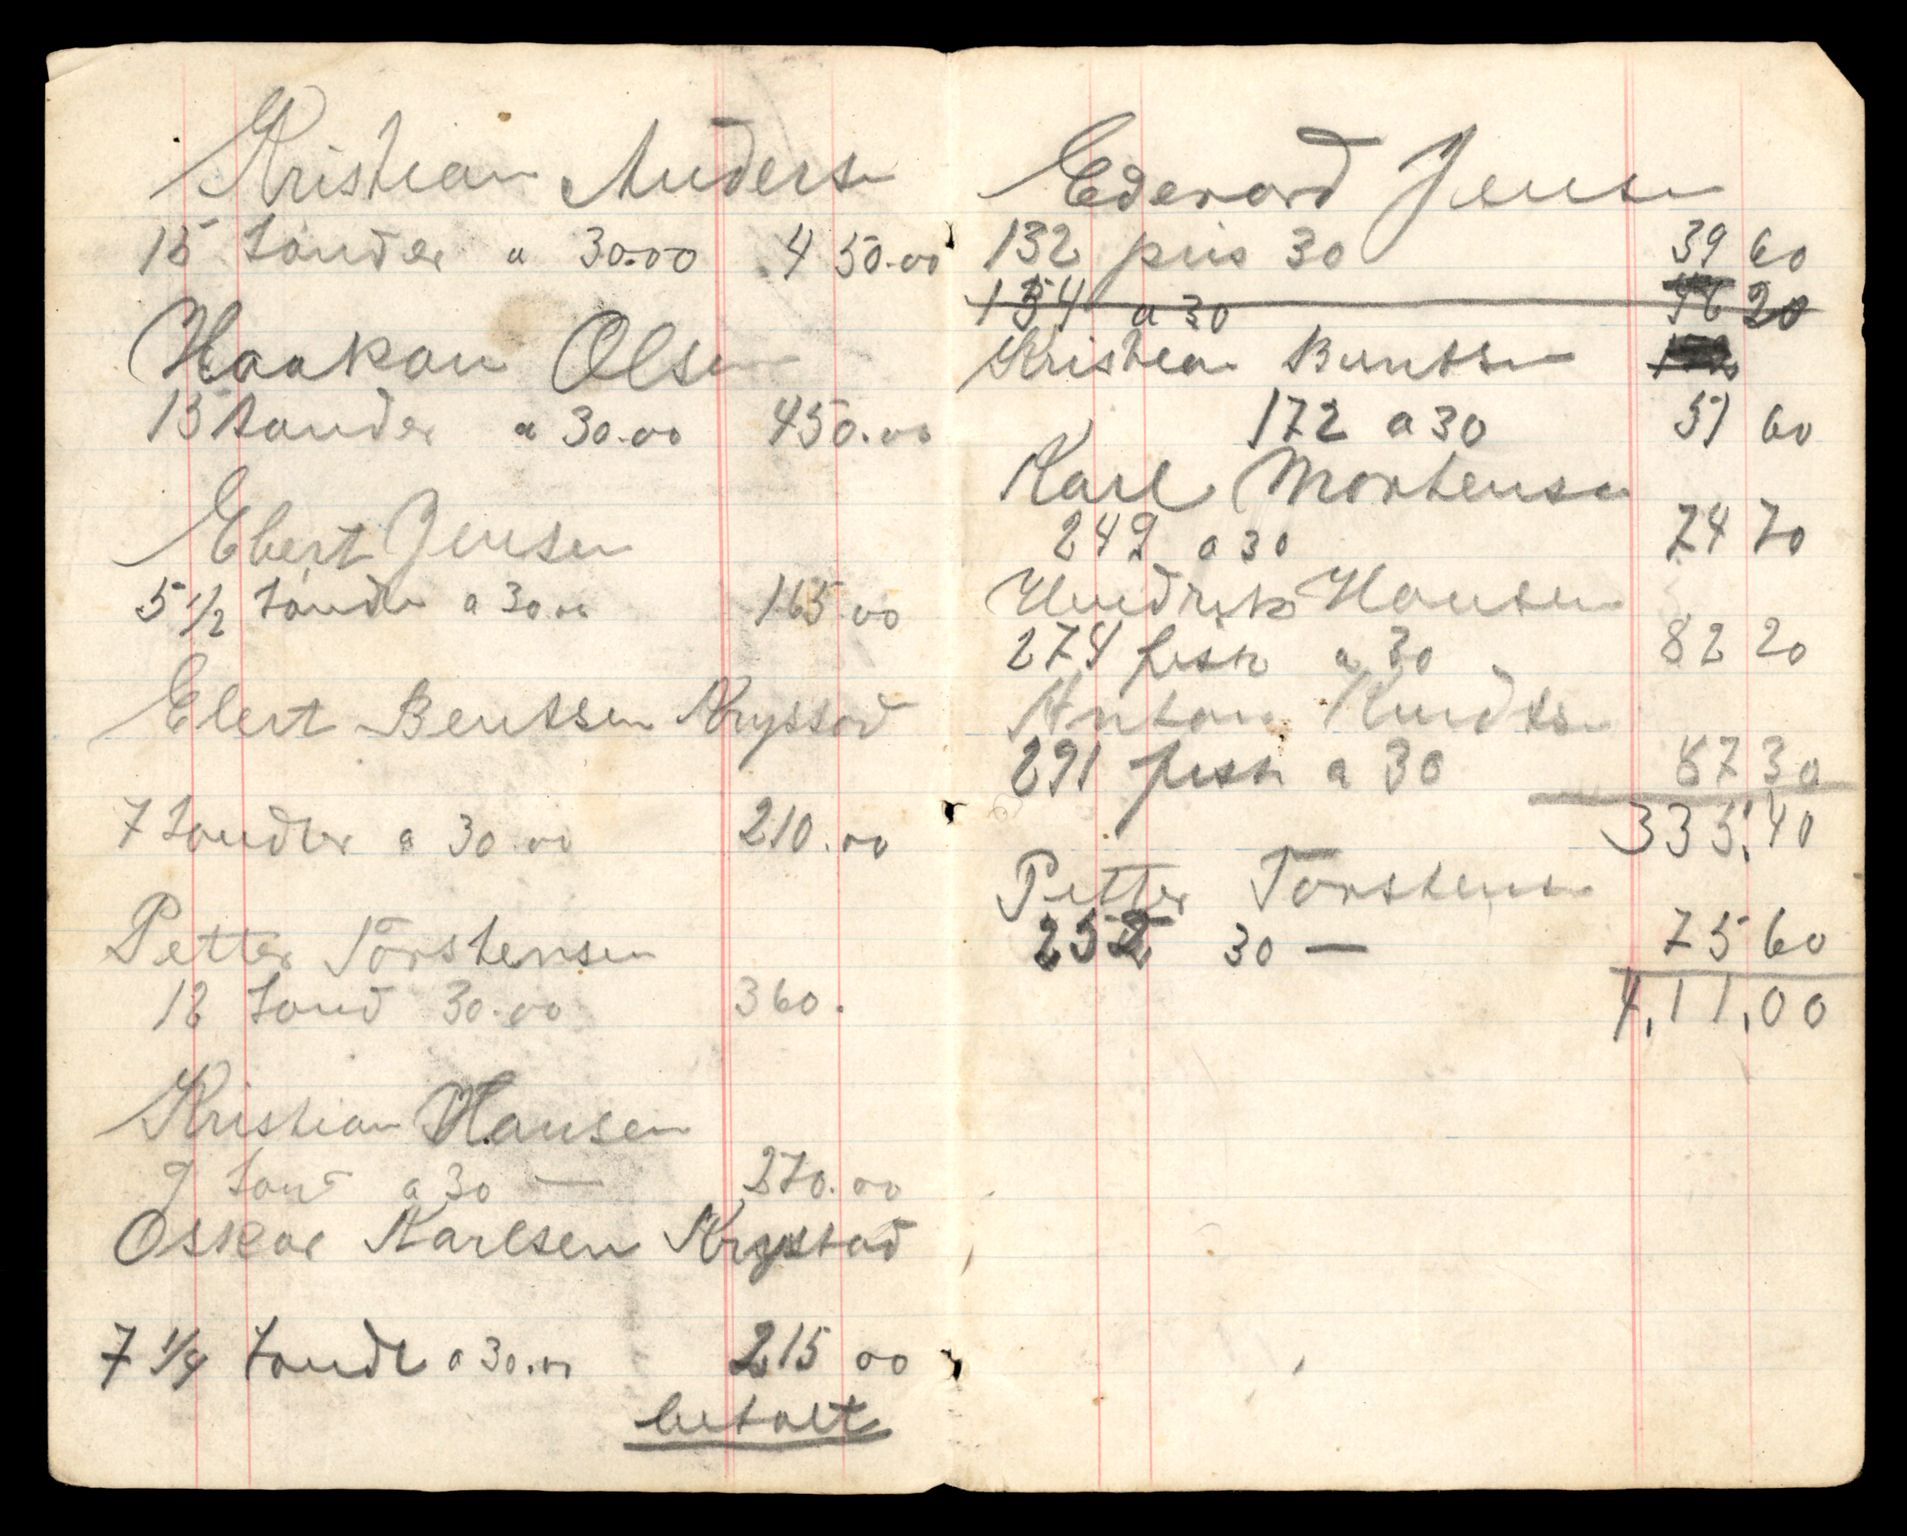 Kristian Andersn
15 tønder a 30.00 450.00
Haakon Olsen
15 tønder a 30.00 450.00
Ebert Jensen
5 1/2 tønder a 30.00 165 00
Elert Bentssen Krystad
7 tønder a 30.00 210.00
Petter Torstensen
12 tønd 30.00 360.
Kristian Hansen
9 tønd a 30 — 270.00
Oskar Karlsen Krystad
7 1/4 tønde a 30.00 215 00
betalt
Edevard Jensn
132 pris 30 39 60
154 a 30 46 20
Kristian Buntsen
172 a 30 51 60
Karl Mortensen
249 a 30 74 70
Hendrik Hansen
274 fisk a 30 82 20
Anton Knudtsn
291 fisk a 30 87 30
335,40
Petter Torstensn
252 30 — 75 60
4,11,00